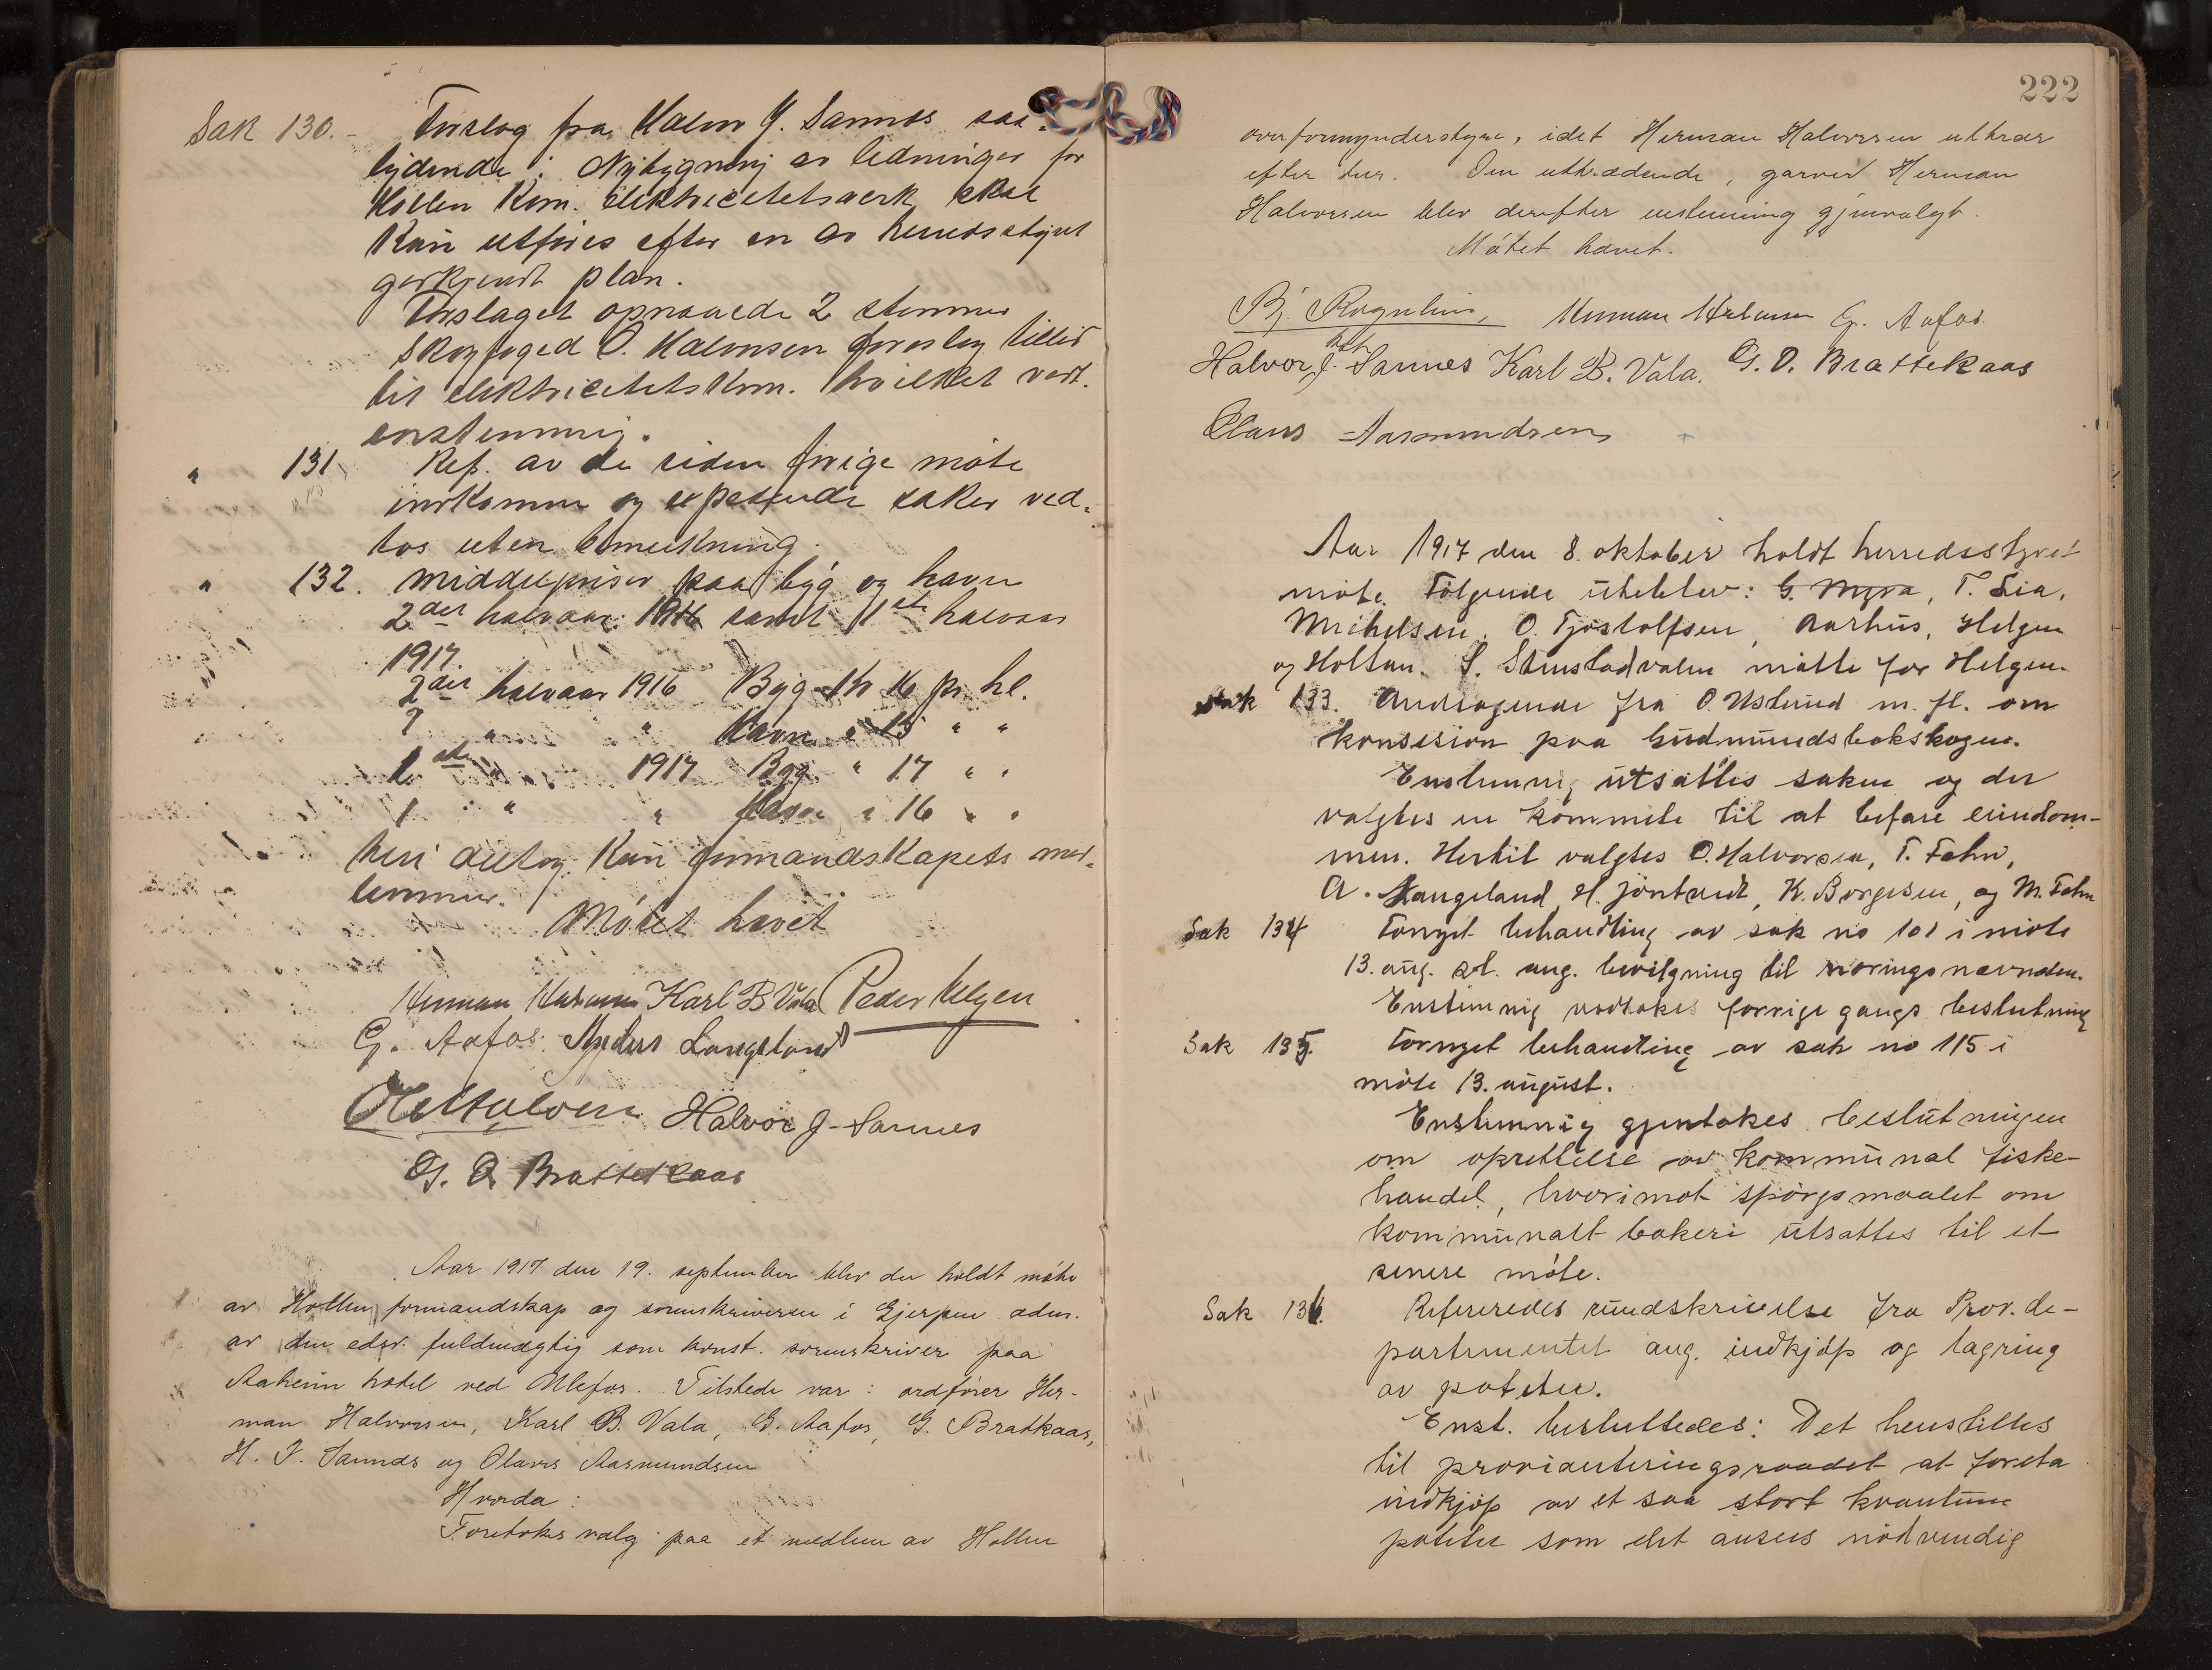 Sak 130. - Forslag fra Halvor J. Sannes saa-
lydende: Nybygning av ledninger for
Hollen Kom. Elektricitetsverk skal
kun utføres efter en av herredsstyret
godkjendt plan.
Forslaget opnaaede 2 stemmer
Skogfoged O. Halvorsen foreslog tillid
til elektricitetskom. hvilket vedt.
enstemmig.
" 131. Ref. av de siden forrige møte
indkomne og expederede saker ved-
tos uten bemerkning.
" 132. Middelpriser paa byg og havre
2det halvaar 1916 samt 1ste halvaar
1917.
2det halvaar 1916 Byg kr 16 pr. hl.
" " Havre " 15 " "
1ste " 1917 Byg " 17 " "
1 " " Havre " 16 " "
heri deltog kun formandskapets med-
lemmer.
Møtet hævet
Herman Halvorsen Karl B Vala Peder Helgen
G. Aafos. Anders Langeland
O Halvorsen Halvor J. Sannes
G. O. Brattekaas
Aar 1917 den 19. september blev der holdt møte
av Hollen formandskap og sorenskriveren i Gjerpen adm.
av den edsv. fuldmægtig som konst. sorenskriver paa
Aaheim hotel ved Ulefos. Tilstede var: ordfører Her-
man Halvorsen, Karl B. Vala, G. Aafos, G. Bratkaas,
H. J. Sannes og Olaus Aasmundsen
Hvorda:
Foretokes valg paa et medlem av Hollen
222
overformynderstyre, idet Herman Halvorsen uttræer
efter tur. Den uttrædende, garver Herman
Halvorsen blev derefter enstemmig gjenvalgt.
Møtet hævet.
Herman Halvorsen G. Aafos.
Halvor J. Sannes Karl B. Vala. G. O. Brattekaas
Olaus Aasmundsen
Aar 1917 den 8. oktober holdt herredsstyret
møte. Følgende uteblev: G. Myra, T. Lia,
Mikelsen, O. Tjostolfsen, Aarhus, Helgen
og Holtan. S. Stenstadvalen møtte for Helgen.
Sak 133. Andragende fra O. Usterud m. fl. om
konsesion paa Gudmundsbakskogen.
Enstemmig utsattes saken og der
valgtes en kommite til at befare eiendom-
men. Hertil valgtes O. Halvorsen, T. Fehn,
A. Langeland, H. Jøntvedt, K. Borgesen, og M. Fehn
Sak 134 Fornyet behandling av sak no 101 i møte
13. aug. d. ang. bevilgning til næringsnævnden.
Enstemmig vedtokes forrige gangs beslutning
Sak 135. Fornyet behandling av sak no 115 i
møte 13. august.
Enstemmig gjentokes beslutningen
om oprettelse av kommunal fiske-
handel, hvorimot spørgsmaalet om
kommunalt bakeri utsattes til et
senere møte.
Sak 136. Refereredes rundskrivelse fra Prov. de-
partementet ang. indkjøp og lagring
av poteter.
Enst. besluttedes: Det henstilles
til provianteringsraadet at foreta
indkjøp av et saa stort kvantum
poteter som det ansees nødvendig